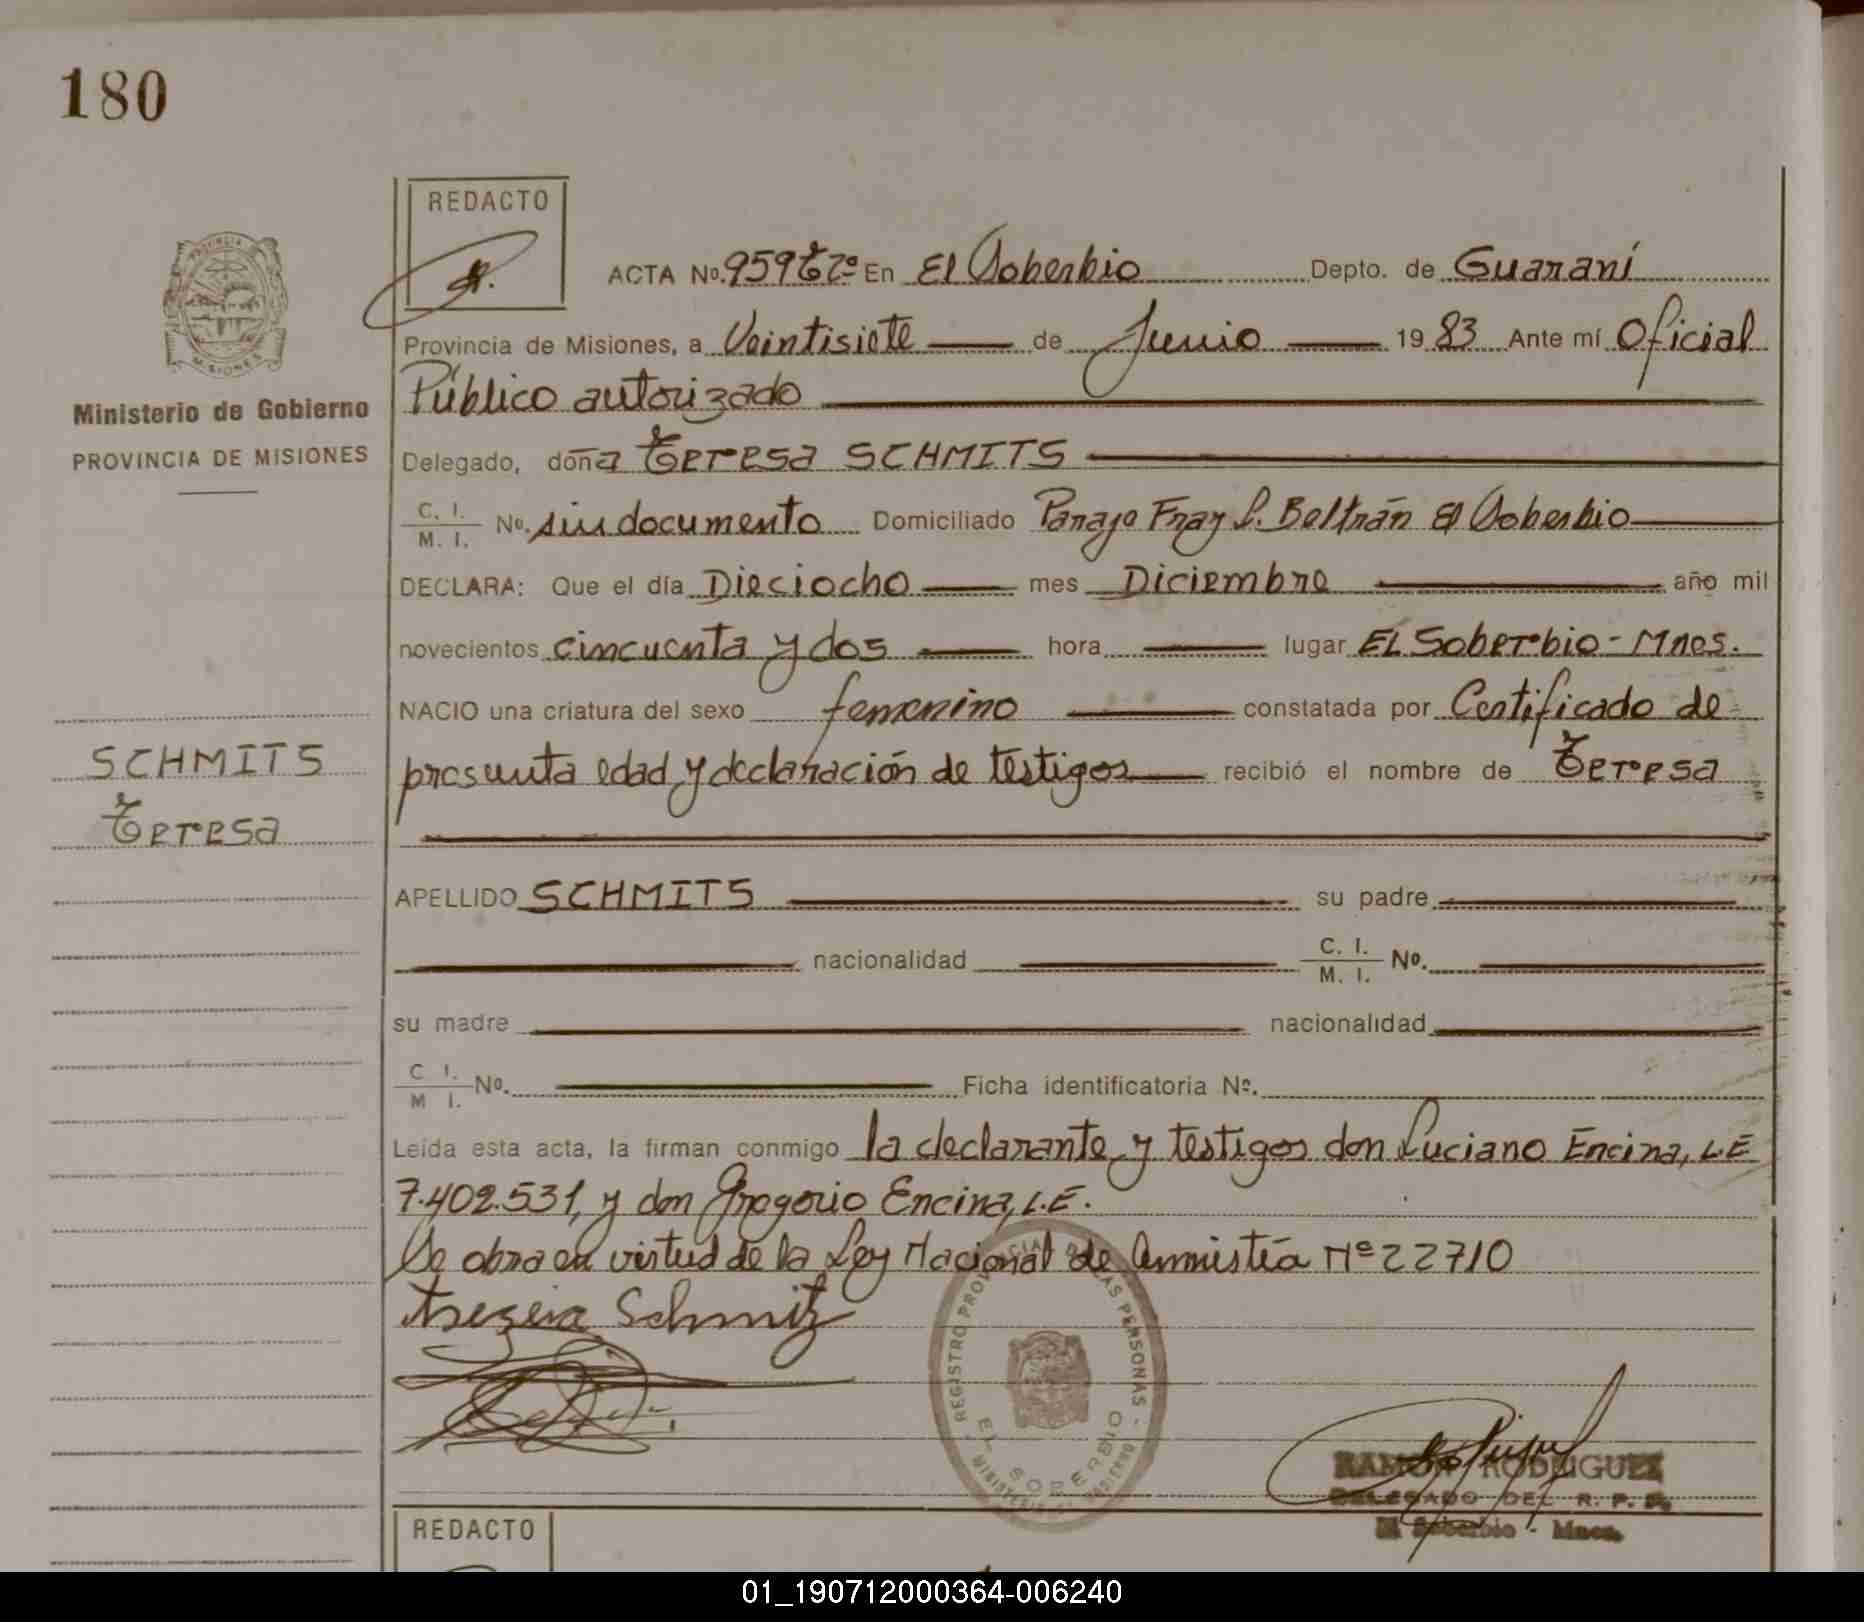 180
REDACTO
ACTA Nº. 959 Tº 2º En El Soberbio Depto. de Guaraní
Provincia de Misiones, a Veintisiete de Junio 1983 Ante mí Oficial
Público autorizado
Ministerio de Gobierno
PROVINCIA DE MISIONES
Delegado, doña Teresa SCHMITS
C. I. / M. I. Nº. sin documento Domiciliado Paraje Fray L. Beltrán El Soberbio
DECLARA: Que el día Dieciocho mes Diciembre año mil
novecientos cincuenta y dos hora lugar EL Soberbio - Mnes.
NACIO una criatura del sexo femenino constatada por Certificado de
presunta edad y declaración de testigos recibió el nombre de Teresa
SCHMITS
Teresa
APELLIDO SCHMITS su padre
nacionalidad C. I. / M. I. Nº.
su madre nacionalidad
C. I. / M. I. Nº. Ficha identificatoria Nº.
Leída esta acta, la firman conmigo la declarante y testigos don Luciano Encina, L.E
7.402.531, y don Gregorio Encina, L.E.
Se obra en virtud de la Ley Nacional de Amnistía Nº 22710
Schmitz
REGISTRO PROVINCIAL DE LAS PERSONAS
EL SOBERBIO
MINISTERIO DE GOBIERNO
RAMON RODRIGUEZ
DELEGADO DEL R. P. P.
El Soberbio - Mnes.
REDACTO
PROVINCIA
MISIONES
01_190712000364-006240